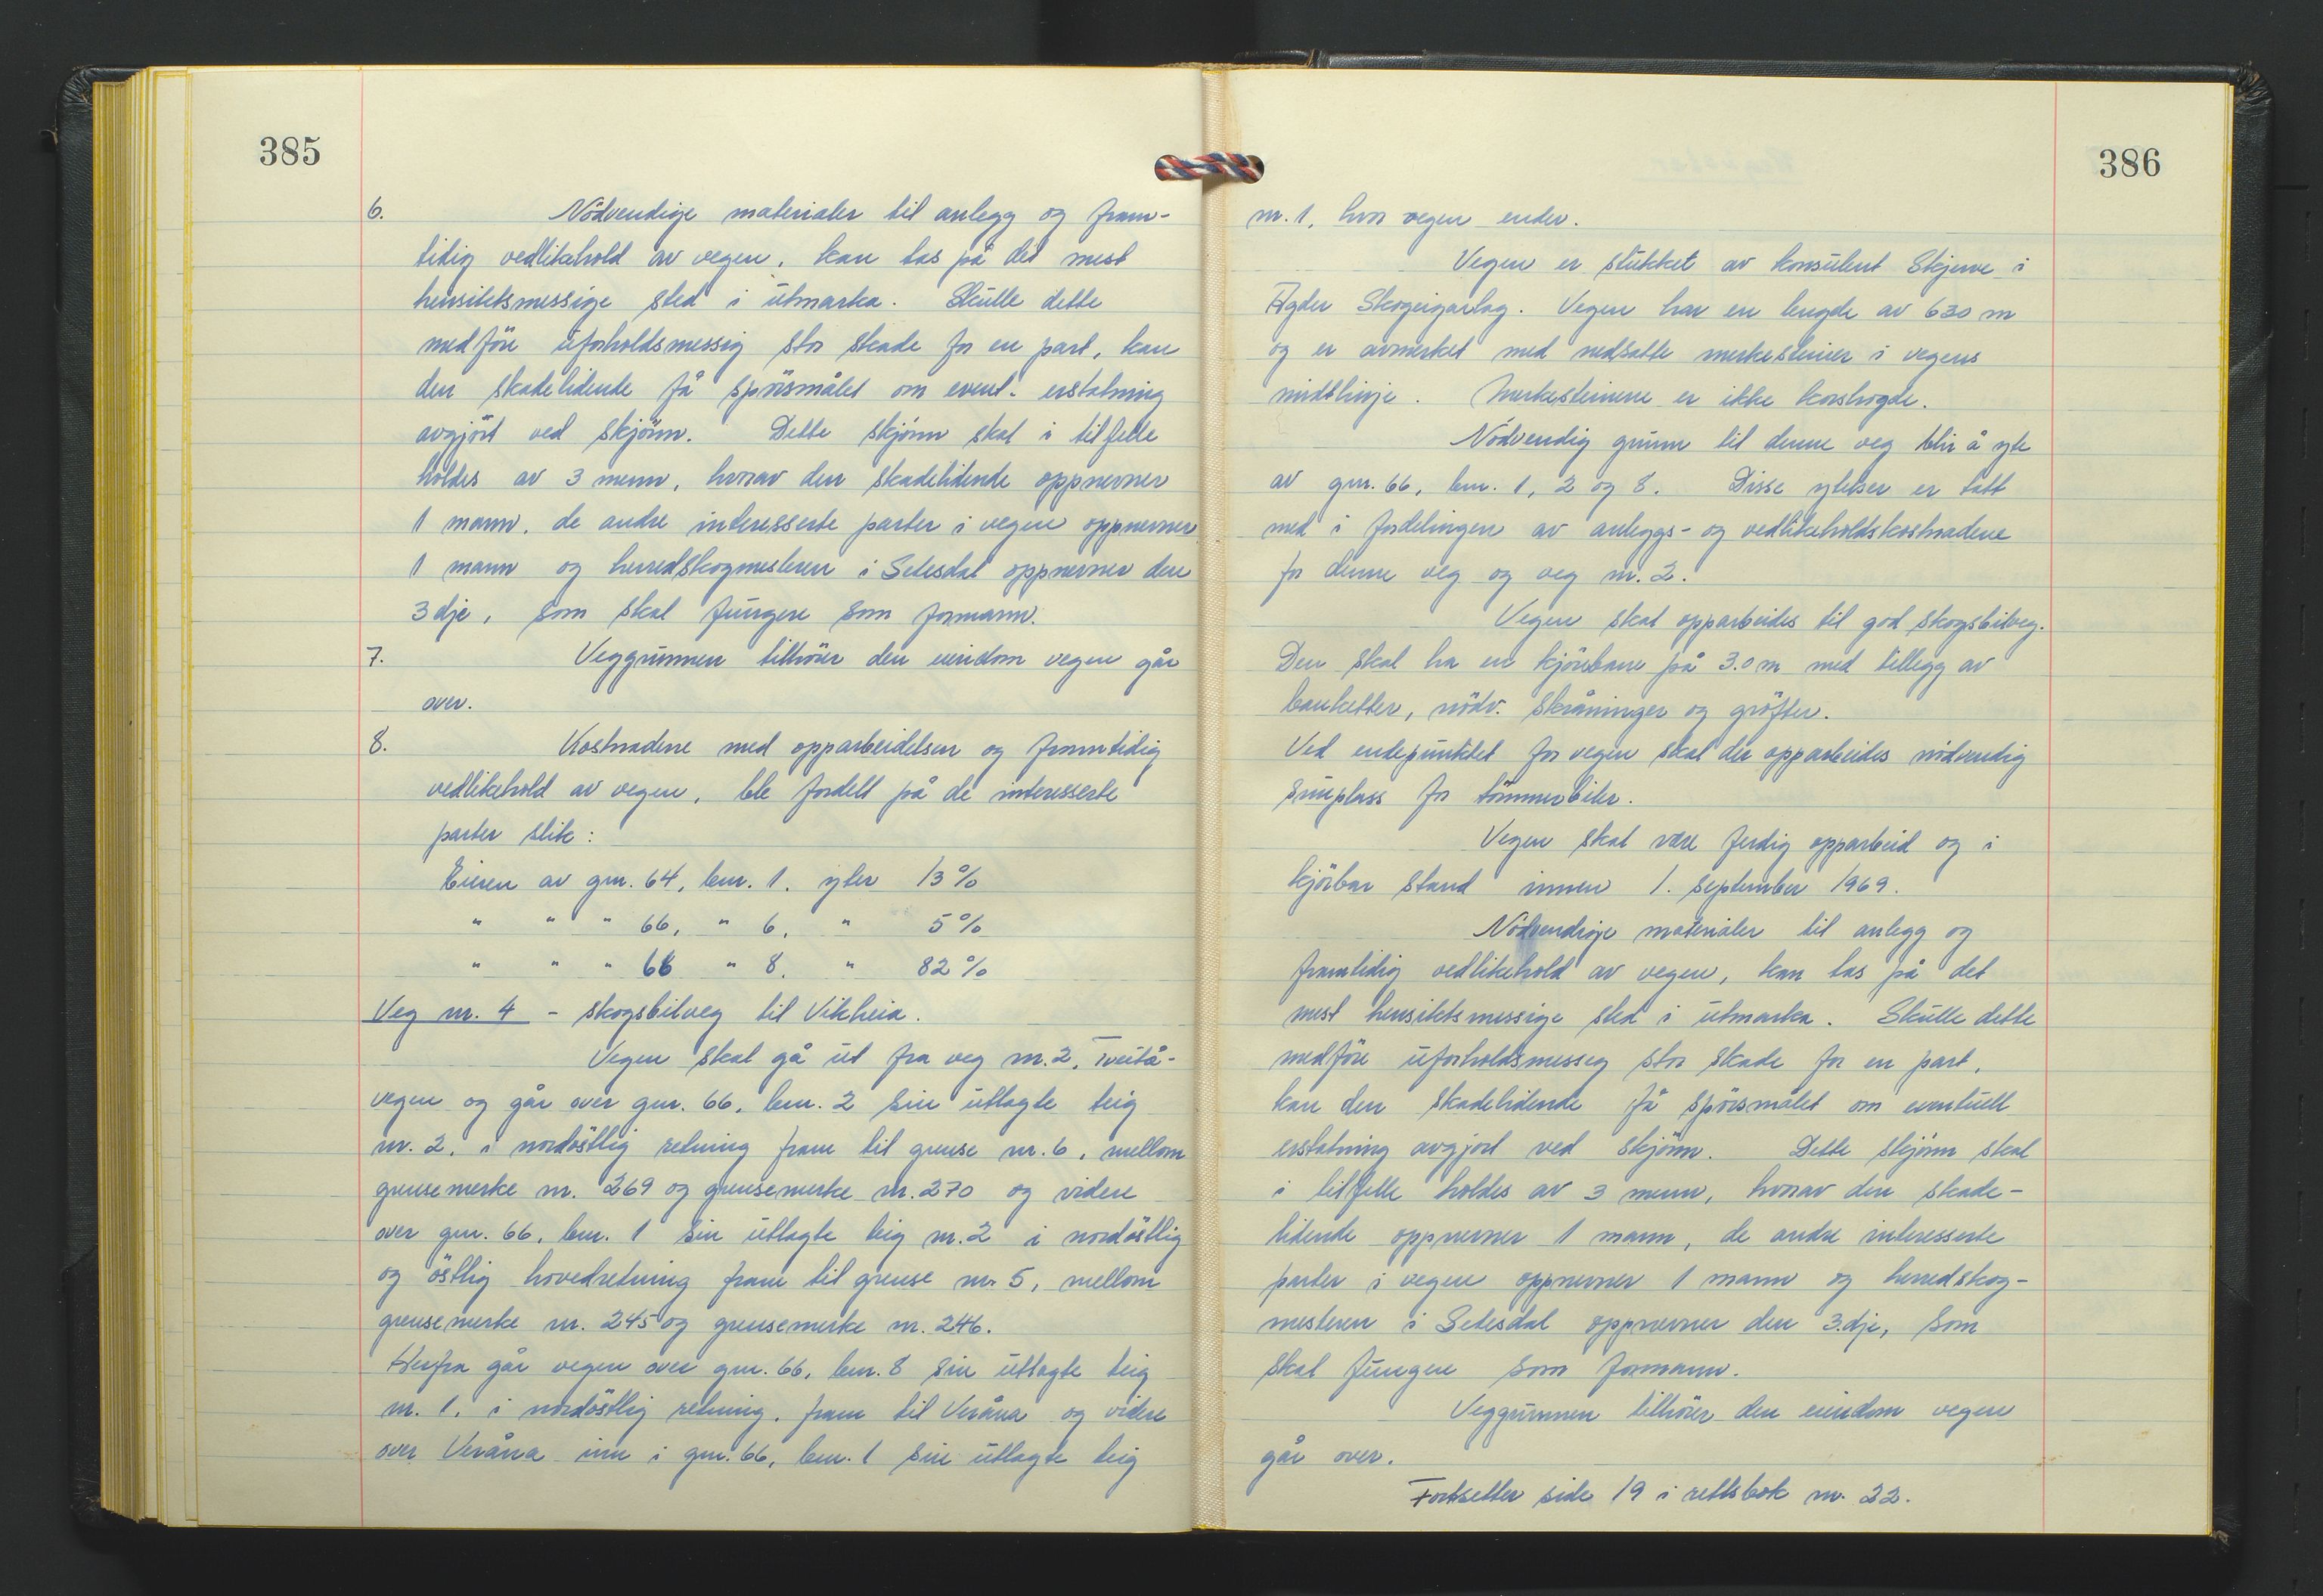 385
6. Nödvendige materialer til anlegg og fram-
tidig vedlikehold av vegen, kan tas på det mest
hensiktsmessige sted i utmarka. Skulle dette
medföre uforholdsmessig stor skade for en part, kan
den skadelidende få spörsmålet om event. erstatning
avgjört ved skjönn. Dette skjönn skal i tilfelle
holdes av 3 menn, hvorav den skadelidende oppnevner
1 mann, de andre interesserte parter i vegen oppnevner
1 mann og herredskogmesteren i Setesdal oppnevner den
3dje, som skal fungere som formann.
7. Veggrunnen tilhörer den eiendom vegen går
over.
8. Kostnadene med opparbeidelsen og framtidig
vedlikehold av vegen, ble fordelt på de interesserte
parter slik:
Eieren av gnr. 64, bnr. 1. yter 13 %
" " " 66, " 6. " 5 %
" " " 66 " 8. " 82 %
Veg nr. 4 - skogsbilveg til Vikheia.
Vegen skal gå ut fra veg nr. 2, Tveitå-
vegen og går over gnr. 66, bnr. 2 sin utlagte teig
nr. 2, i nordöstlig retning fram til grense nr. 6, mellom
grensemerke nr. 269 og grensemerke nr. 270 og videre
over gnr. 66, bnr. 1 sin utlagte teig nr. 2 i nordöstlig
og östlig hovedretning fram til grense nr. 5, mellom
grensemerke nr. 245 og grensemerke nr. 246.
Herfra går vegen over gnr. 66, bnr. 8 sin utlagte teig
nr. 1, i nordöstlig retning, fram til Veråna og videre
over Veråna inn i gnr. 66, bnr. 1 sin utlagte teig
386
nr. 1, hvor vegen ender.
Vegen er stukket av konsulent Skjerve i
Agder Skogeigarlag. Vegen har en lengde av 630 m
og er avmerket med nedsatte merkesteiner i vegens
midtlinje. Merkesteinene er ikke korshogde.
Nödvendig grunn til denne veg blir å yte
av gnr. 66, bnr. 1, 2 og 8. Disse ytelser er tatt
med i fordelingen av anleggs- og vedlikeholdskostnadene
for denne veg og veg nr. 2.
Vegen skal opparbeides til god skogsbilveg.
Den skal ha en kjörebane på 3.0 m med tillegg av
banketter, nödv. skråninger og gröfter.
Ved endepunktet for vegen skal der opparbeides nödvendig
snuplass for tömmerbiler.
Vegen skal være ferdig opparbeid og i
kjörbar stand innen 1. september 1969.
Nödvendige materialer til anlegg og
framtidig vedlikehold av vegen, kan tas på det
mest hensiktsmessige sted i utmarka. Skulle dette
medföre uforholdsmessig stor skade for en part,
kan den skadelidende få spörsmålet om eventuell
erstatning avgjort ved skjönn. Dette skjönn skal
i tilfelle holdes av 3 menn, hvorav den skade-
lidende oppnevner 1 mann, de andre interesserte
parter i vegen oppnevner 1 mann og herredskog-
mesteren i Setesdal oppnevner den 3.dje, som
skal fungere som formann.
Veggrunnen tilhörer den eiendom vegen
går over.
Fortsetter side 19 i rettsbok nr. 22.